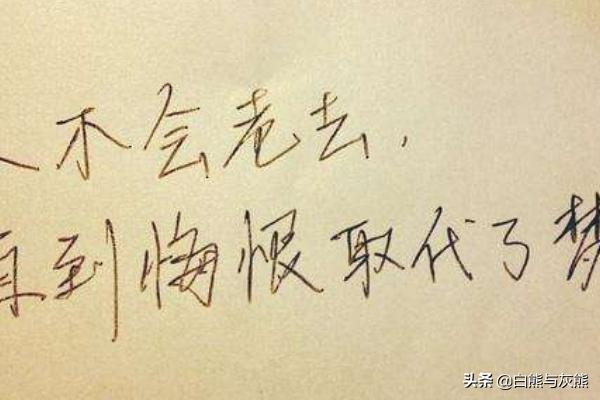 人不会老去,
直到悔恨取代了梦
头条 @白熊与灰熊